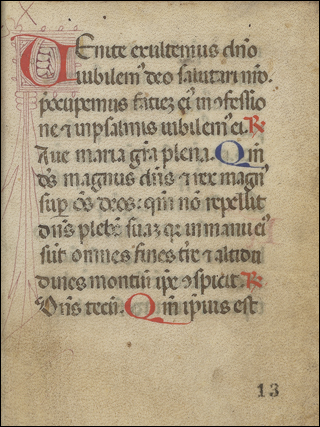 Uenite exultemus dn̄o
iubilem᷒ deo salutari nr̄o.
p̄ocupemus faciez ei᷒ in ꝯfessio
ne ⁊ in psalmis iubilem᷒ ei. R̃
Aue maria grā plena. Qm̄
ds̄ magnus dn̄s ⁊ rex magn᷒
sup̄ oēs deos: qm̄ nō repellit
dn̄s plebē suaz qz in manu ei᷒
sūt omnes fines tr̄e ⁊ altitu
dines montiū ip̄e ꝯspicit. R̃
Dn̄s tecū. Qm̄ ipsius est
13